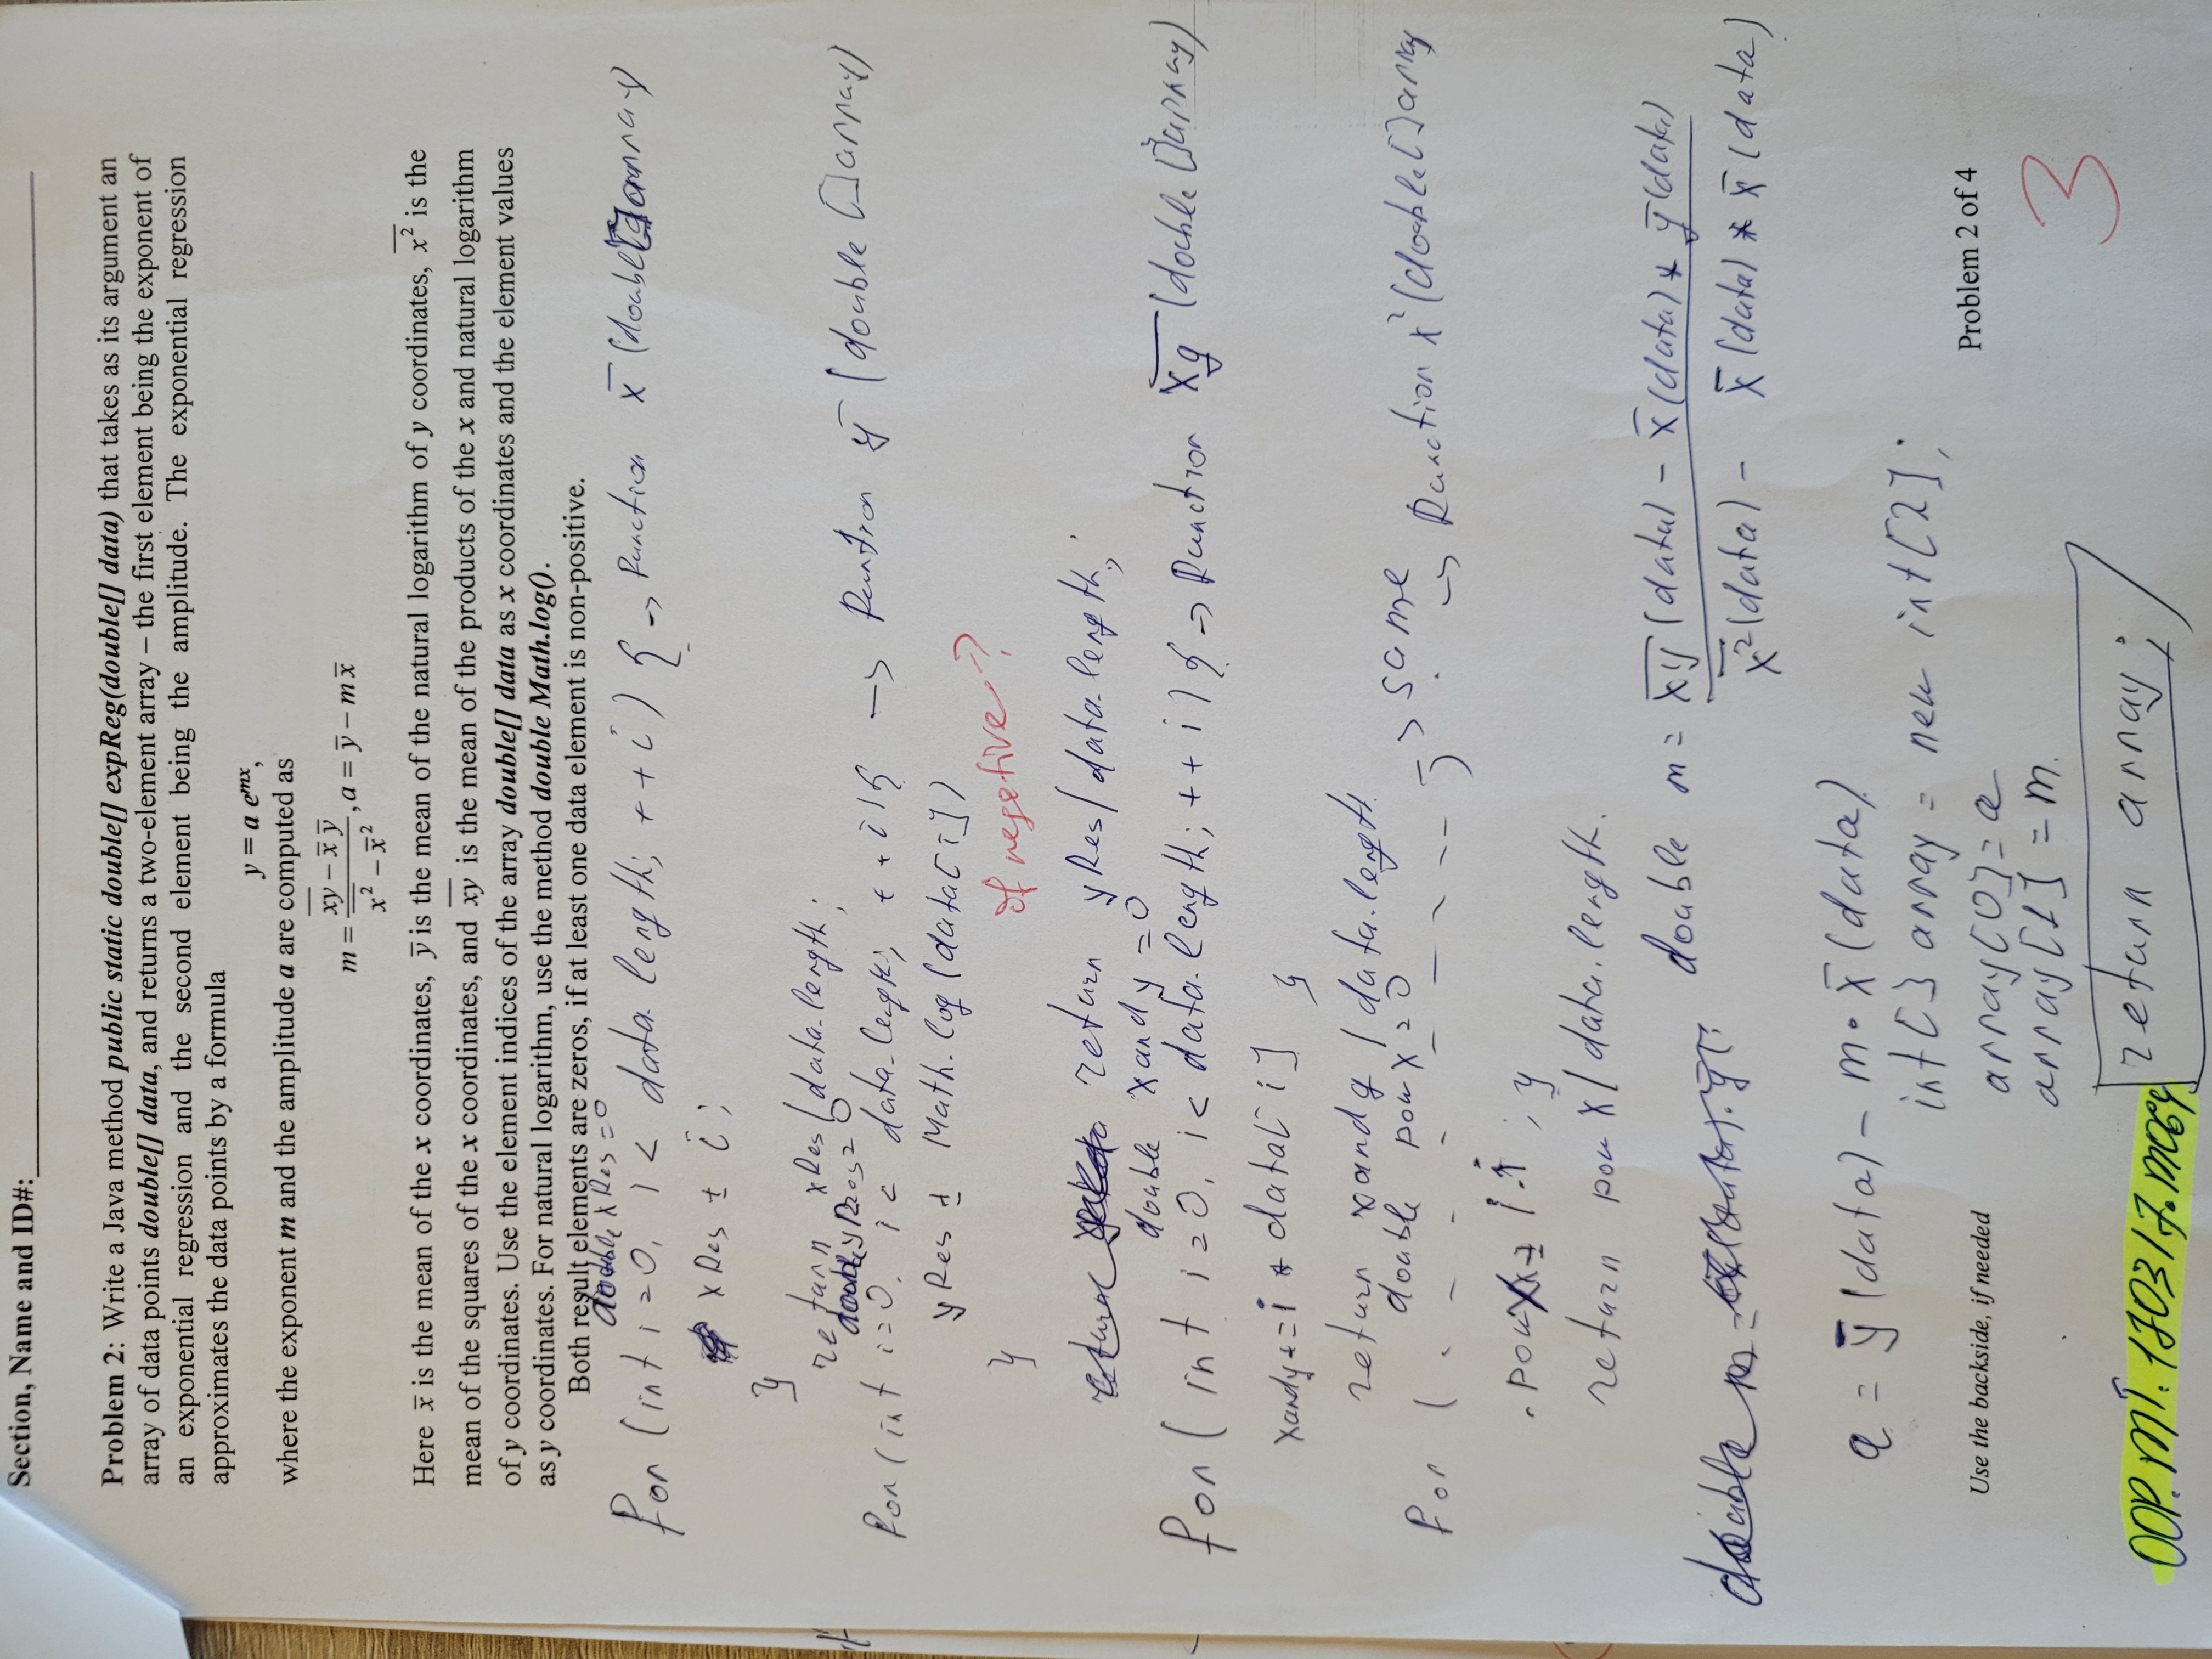 Section, Name and ID#:
Problem 2: Write a Java method public static double[] expReg(double[] data) that takes as its argument an
array of data points double[] data, and returns a two-element array – the first element being the exponent of
an exponential regression and the second element being the amplitude. The exponential regression
approximates the data points by a formula
y = a e^{mx},
where the exponent m and the amplitude a are computed as
m = \frac{\overline{xy} - \bar{x}\,\bar{y}}{\overline{x^2} - \bar{x}^2}, a = \bar{y} - m\bar{x}
Here x̄ is the mean of the x coordinates, ȳ is the mean of the natural logarithm of y coordinates, \overline{x^2} is the
mean of the squares of the x coordinates, and \overline{xy} is the mean of the products of the x and natural logarithm
of y coordinates. Use the element indices of the array double[] data as x coordinates and the element values
as y coordinates. For natural logarithm, use the method double Math.log().
Both result elements are zeros, if at least one data element is non-positive.
double xRes = 0
for (int i = 0, i < data.length; ++i) { → function x̄ (double[] array)
xRes += i;
}
return xRes / data.length;
double yRes = 0
for (int i = 0, i < data.length; ++i) { → function ȳ (double []array)
yRes += Math.log(data[i])
}
if negetive?
return yRes / data.length;
double xandy = 0
for (int i = 0, i < data.length; ++i) { → function \overline{xy} (double []array)
xandy += i * data[i] }
return xandy / data.length
double powx = 0
for ( . - - - - - - - - ) → same → function x² (double[] array
powx += i·i ; }
return powx / data.length.
double m = \frac{\overline{xy}(data) - x̄(data) * ȳ(data)}{\overline{x^2}(data) - x̄(data) * x̄(data)}
a = ȳ(data) - m · x̄(data)
int[] array = new int[2];
Use the backside, if needed
Problem 2 of 4
array[0] = a
array[1] = m.
3
return array;
OOP.MT.170317.M064